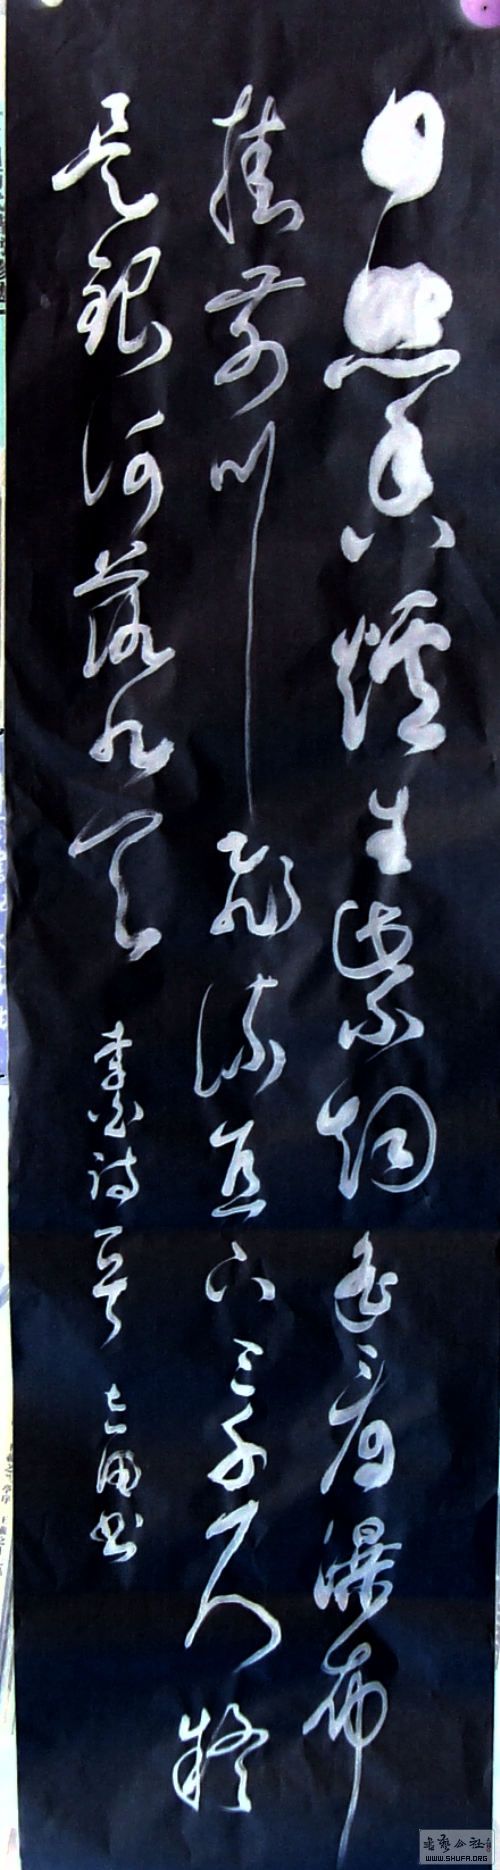 日照香爐生紫烟遥看瀑布
挂前川飛流直下三千尺疑
是銀河落九天 李白詩一首 书
書藝公社
WWW.SHUFA.ORG